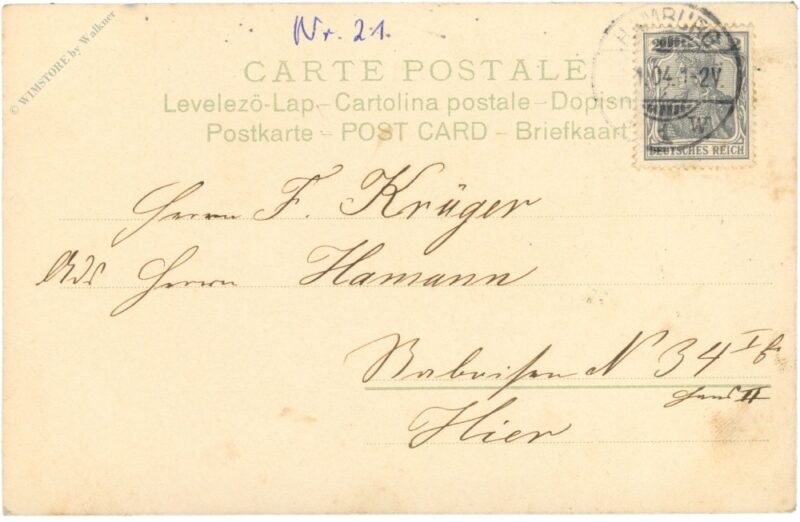 Nr. 21.
© WIMSTORE by Walkner
HAMBURG
04.1-2V
DEUTSCHES REICH
CARTE POSTALE
Levelező-Lap – Cartolina postale – Dopisn
Postkarte – POST CARD – Briefkaart
Herrn F. Krüger
Ads Herrn Hamann
N 34 I b
Haus II
Hier